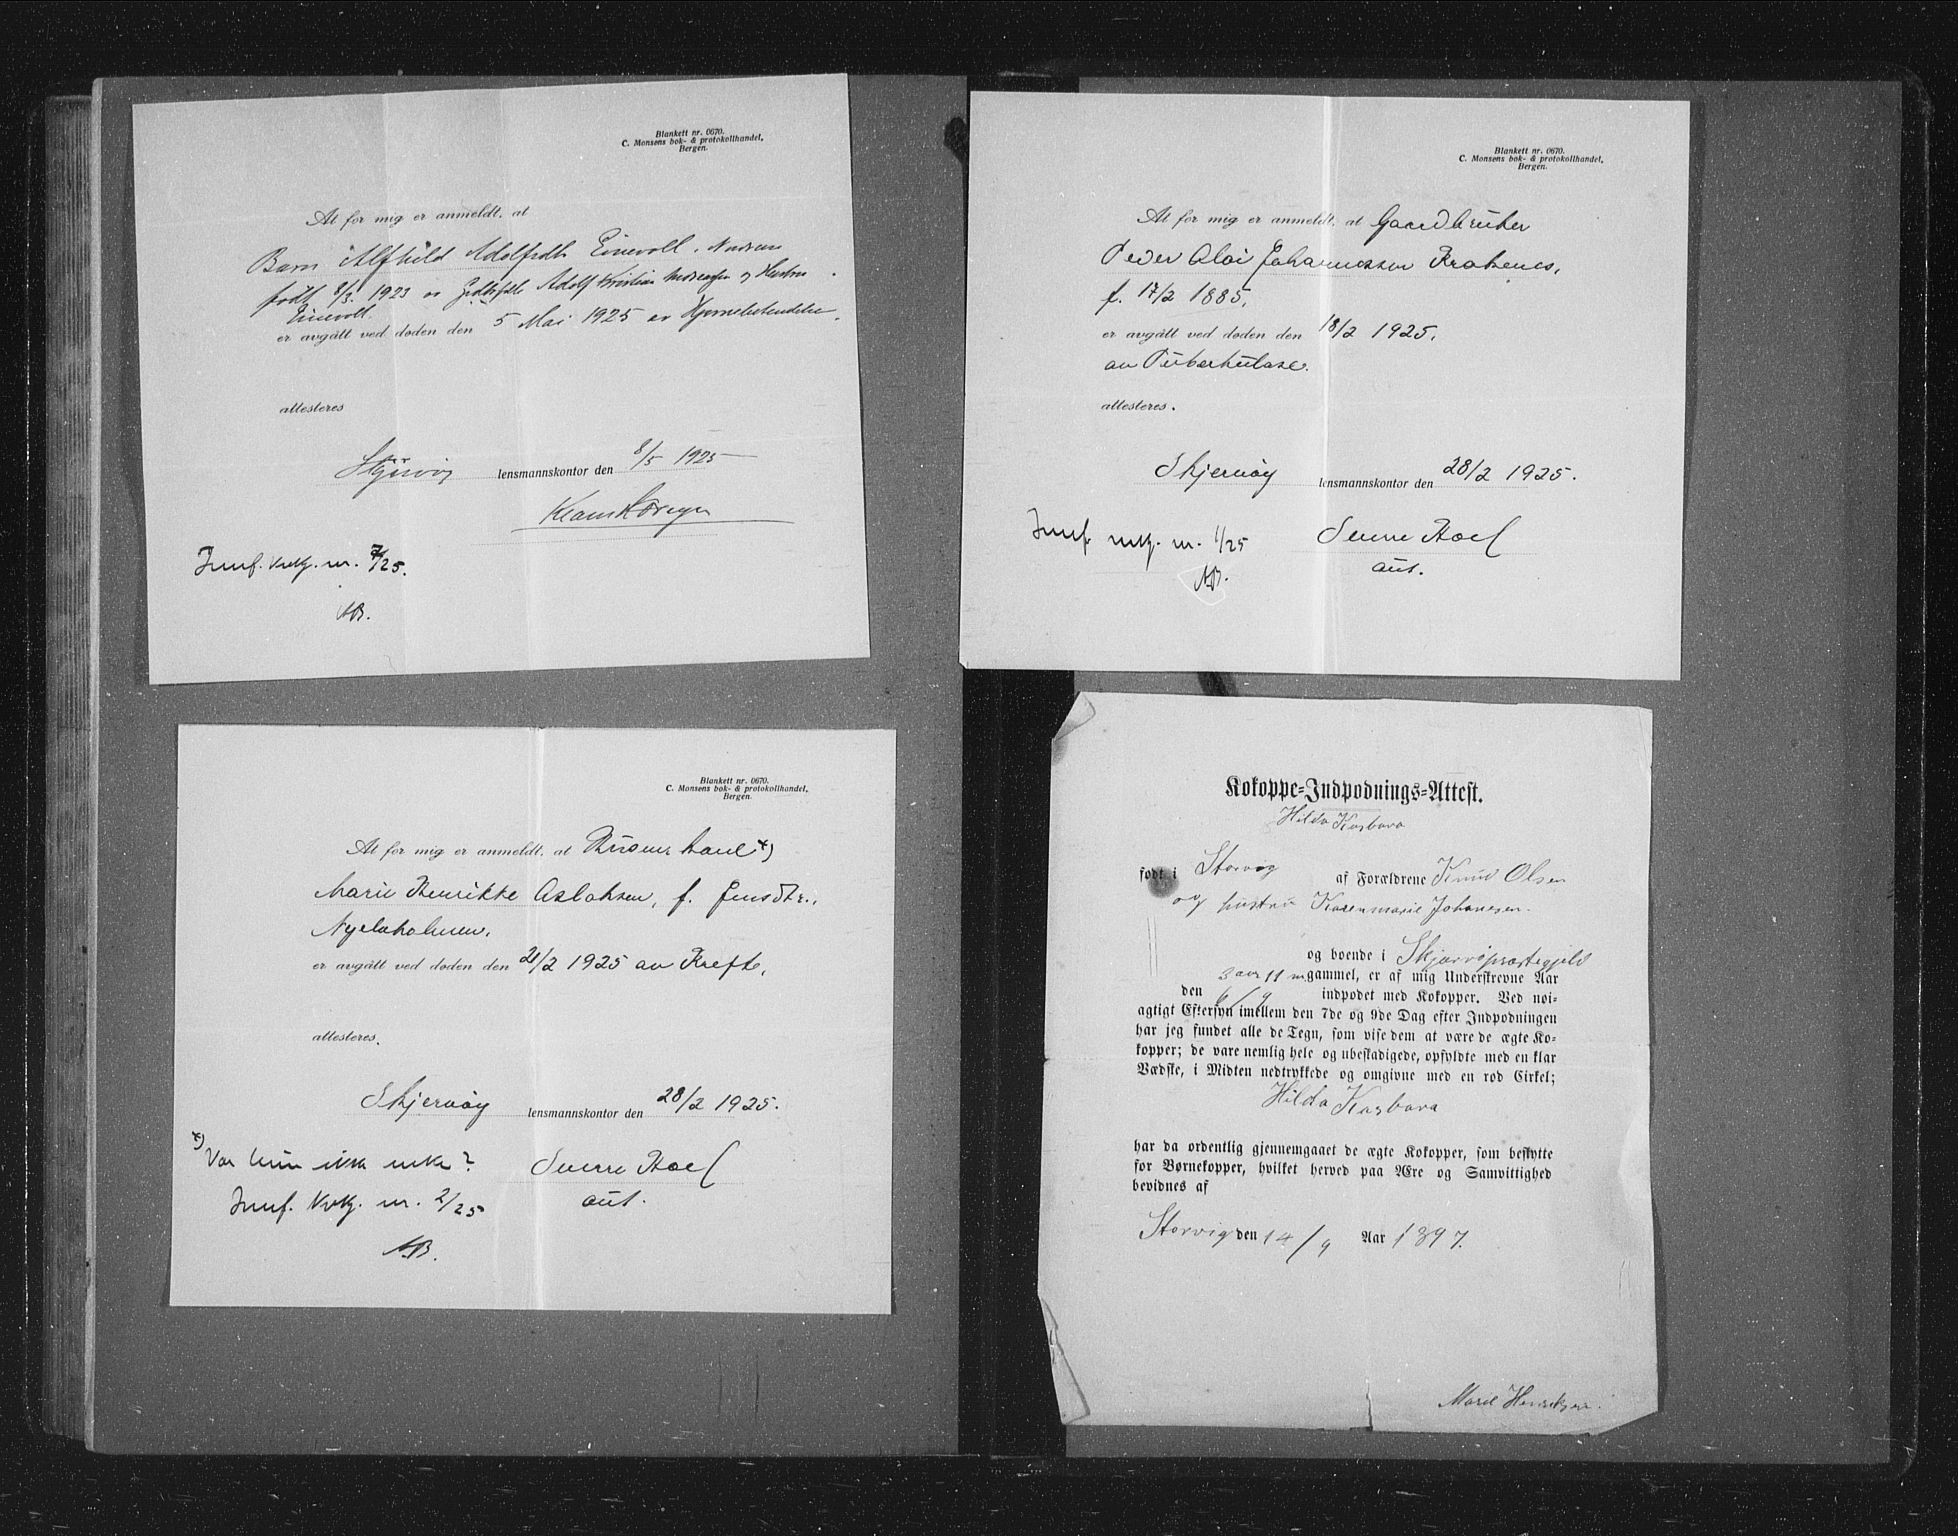 Blankett nr. 0670.
C. Monsens bok- & protokollhandel,
Bergen.
At for mig er anmeldt, at
Barn Alfhild Adolfsdtr. Einevoll,
født 8/3. 1923 av Adolf Kristian og Hustru
Einevoll.
er avgått ved døden den 5 Mai 1925 av
attesteres
lensmannskontor den 8/5 1925
Innf. nr. 7/25.
AB.
Blankett nr. 0670.
C. Monsens bok- & protokollhandel,
Bergen.
At for mig er anmeldt, at Gaardbruker
Peder Olai Johannessen
f. 17/2 1885,
er avgått ved døden den 18/2 1925.
av Tuberkulose.
attesteres.
Skjervøy lensmannskontor den 28/2 1925.
Innf. nr. 1/25
AB.
Sverre Hoel
aut.
Blankett nr. 0670.
C. Monsens bok- & protokollhandel,
Bergen.
At for mig er anmeldt, at *)
Marie Henrikke Aslaksen, f. Jensdtr.,
er avgått ved døden den 21/2 1925 av Kreft.
attesteres.
Skjervøy lensmannskontor den 28/2 1925.
*) Var hun ikke enke?
Innf. nr. 2/25
AB.
Sverre Hoel
aut.
Kokoppe-Indpodnings-Attest.
Hilda Kasbara
født i Storvig af Forældrene Knud Olsen
og hustru Karenmarie Johanesen.
og boende i Skjærvöpræstegjeld
3 aar 11 m gammel, er af mig Underskrevne Aar
den 6/9 indpodet med Kokopper. Ved nøi-
agtigt Eftersyn imellem den 7de og 9de Dag efter Indpodningen
har jeg fundet alle de Tegn, som vise dem at være de ægte Ko-
kopper; de vare nemlig hele og ubeskadigede, opfyldte med en klar
Vædske, i Midten nedtrykkede og omgivne med en rød Cirkel;
Hilda Kasbara
har da ordentlig gjennemgaaet de ægte Kokopper, som beskytte
for Børnekopper, hvilket herved paa Ære og Samvittighed
bevidnes af
Storvig den 14/9 Aar 1897.
Marie Henriksen.